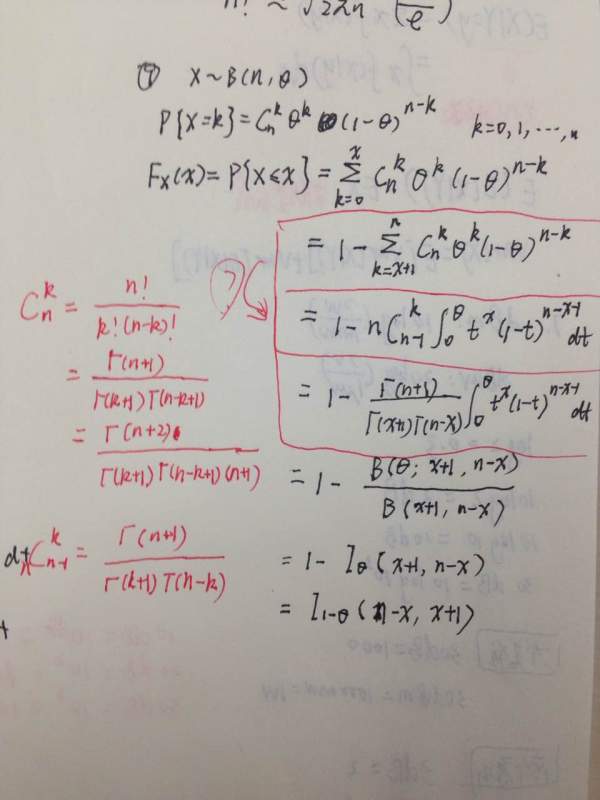 n! ~ √2πn (n/e)
⑨ X ~ B(n, θ)
P{X=k} = C_n^k θ^k (1-θ)^{n-k}   k=0, 1, ⋯, n
F_X(x) = P{X≤x} = Σ_{k=0}^{x} C_n^k θ^k (1-θ)^{n-k}
= 1 - Σ_{k=x+1}^{n} C_n^k θ^k (1-θ)^{n-k}
= 1 - n C_{n-1}^k ∫_0^θ t^x (1-t)^{n-x-1} dt
= 1 - Γ(n+1) / (Γ(x+1) Γ(n-x)) ∫_0^θ t^x (1-t)^{n-x-1} dt
= 1 - B(θ; x+1, n-x) / B(x+1, n-x)
= 1 - I_θ (x+1, n-x)
= I_{1-θ} (n-x, x+1)
C_n^k = n! / (k! (n-k)!)
= Γ(n+1) / (Γ(k+1) Γ(n-k+1))
= Γ(n+2) / (Γ(k+1) Γ(n-k+1) (n+1))
C_{n-1}^k = Γ(n+1) / (Γ(k+1) Γ(n-k))